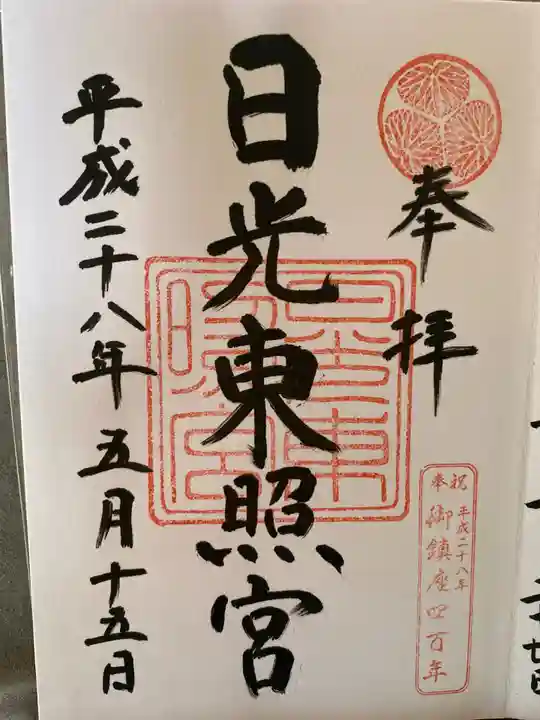 奉拝
日光東照宮
平成二十八年五月十五日
日光東照宮
祝 平成二十八年
奉 御鎮座四百年